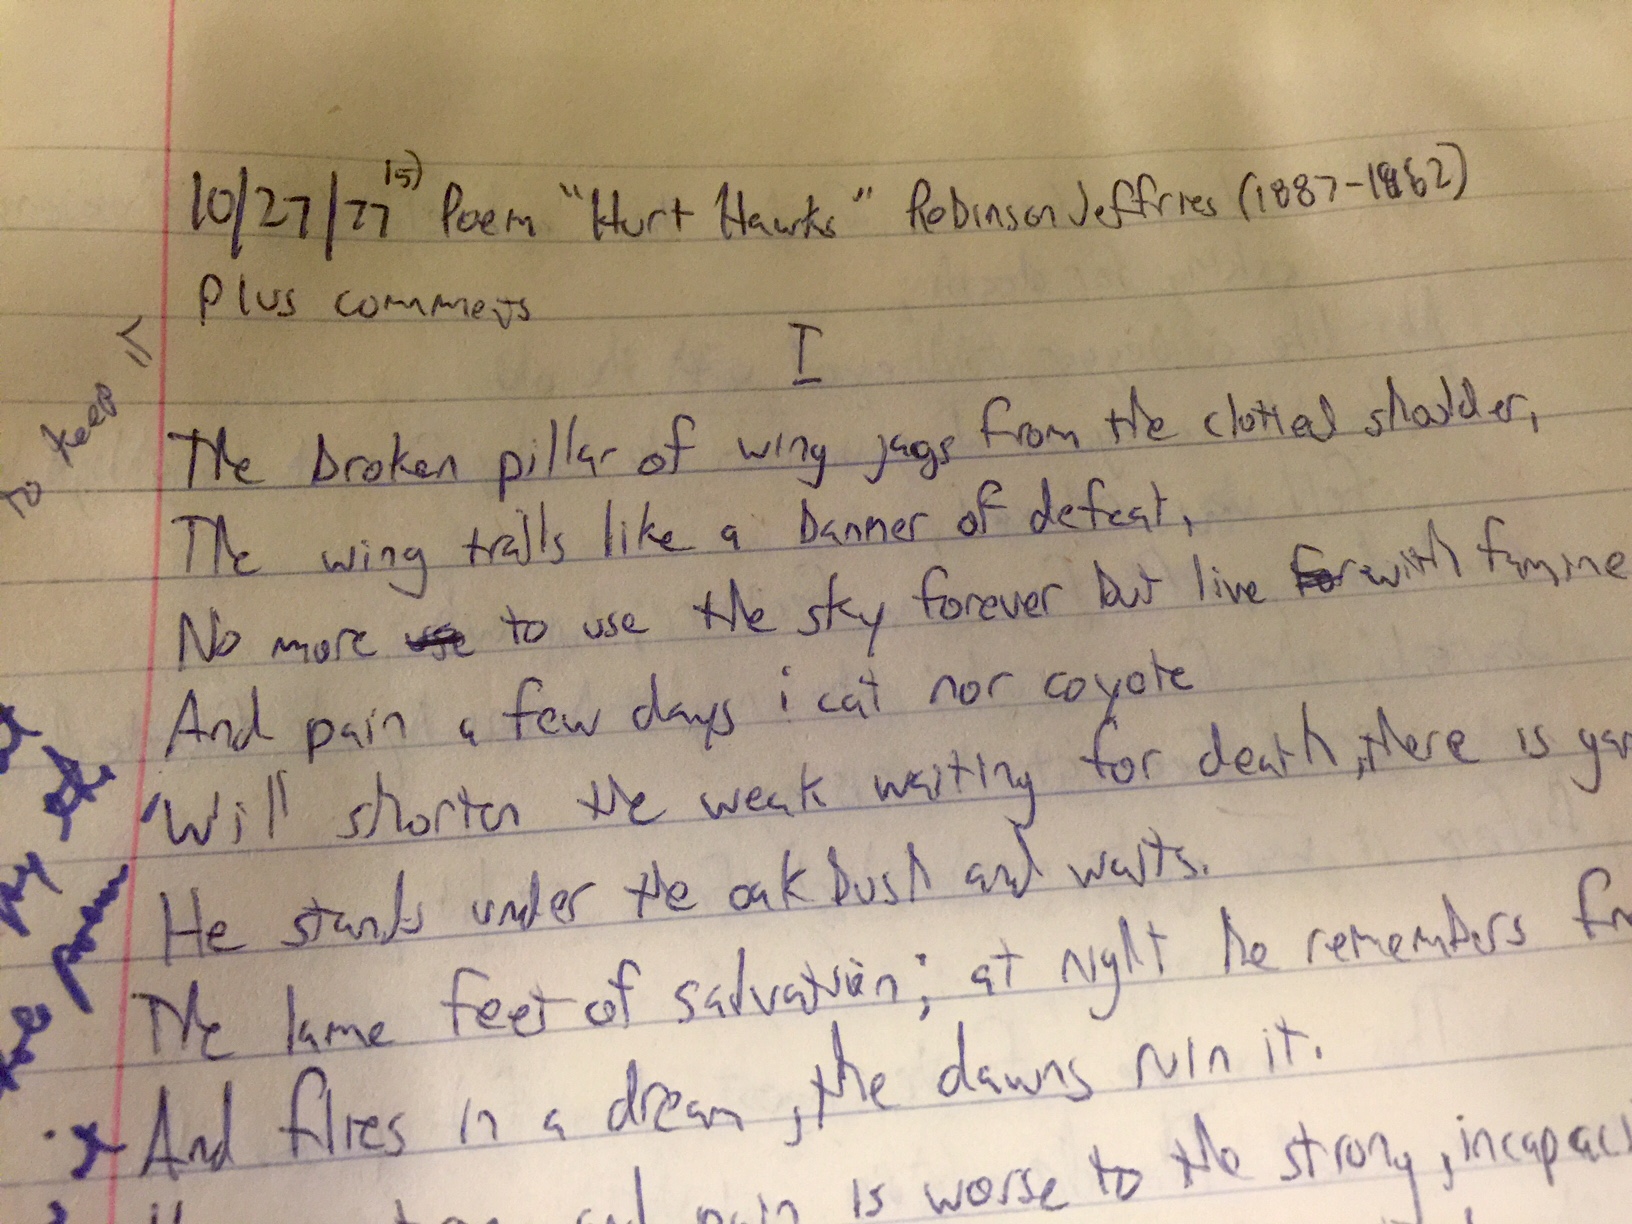 10/27/77 15) Poem "Hurt Hawks" Robinson Jeffries (1887-1962)
Plus commets
I
to keep =
The broken pillar of wing jags from the clotted shoulder,
The wing trails like a banner of defeat,
No more use to use the sky forever but live for with famine
And pain a few days; cat nor coyote
Will shorten the weak waiting for death, there is
He stands under the oak bush and waits.
The lame feet of salvation; at night he remembers
And flies in a dream, the dawns ruin it.
and pain is worse to the strong,